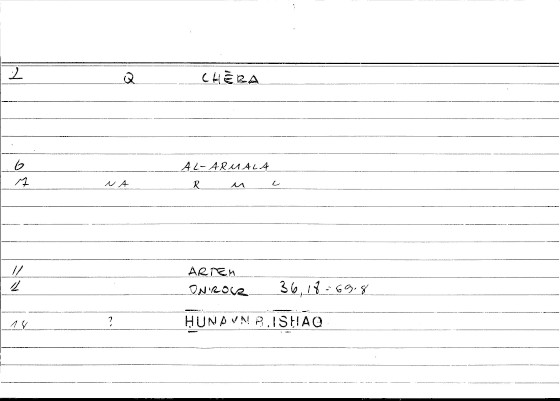 2 Q CHĒRA
6 AL-ARMALA
17 NA R M L
11 ARTEM
ONIROCR 36,18-69.8
18 ? HUNAYN B. ISHAQ